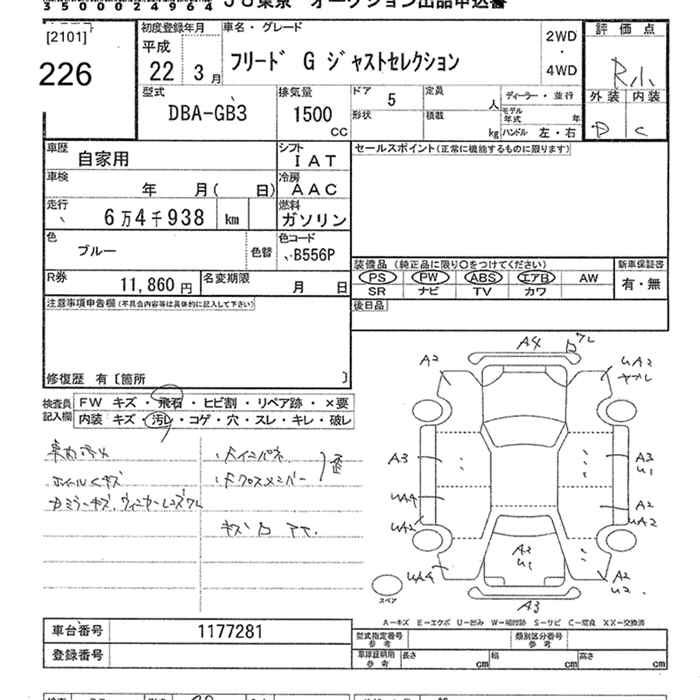 350000249964 JU東京 オークション出品申込書
[2101]
226
初度登録年月
平成
22 3月
車名・グレード
フリード G ジャストセレクション
2WD
・
4WD
評価点
R小
型式
DBA-GB3
排気量
1500
CC
ドア 5
形状
定員 人
積載 kg
ディーラー・並行
モデル年式 年
ハンドル 左・右
外装 内装
D C
車歴 自家用
シフト IAT
車検 年 月( 日)
冷房 AAC
走行 6万4千938 km
燃料 ガソリン
色 ブルー
色替
色コード B556P
R券 11,860円
名変期限 月 日
セールスポイント(正常に機能するものに限ります)
装備品(純正品に限り○をつけてください)
PS PW ABS エアB AW
SR ナビ TV カワ
新車保証書
有・無
後日品
注意事項申告欄(不具合内容等は具体的に記入して下さい)
修復歴 有〔箇所 〕
検査員記入欄
FW キズ・飛石・ヒビ割・リペア跡・×要
内装 キズ・汚レ・コゲ・穴・スレ・キレ・破レ
ホイールキズ
ドミラーキズ、ウィンカーレンズワレ
Fインパネ
Fクロスメンバー
歪
A4 ワレ
A2
UA2
A3
A3
U1
UA4
A2
UA2
UA2
A2
U1
UA4
A2
U2
A3
スペア
A－キズ E－エクボ U－凹み W－補修跡 S－サビ C－腐食 XX－交換済
車台番号 1177281
登録番号
型式指定番号 参考
類別区分番号 参考
車庫証明用 参考 長さ cm 幅 cm 高さ cm